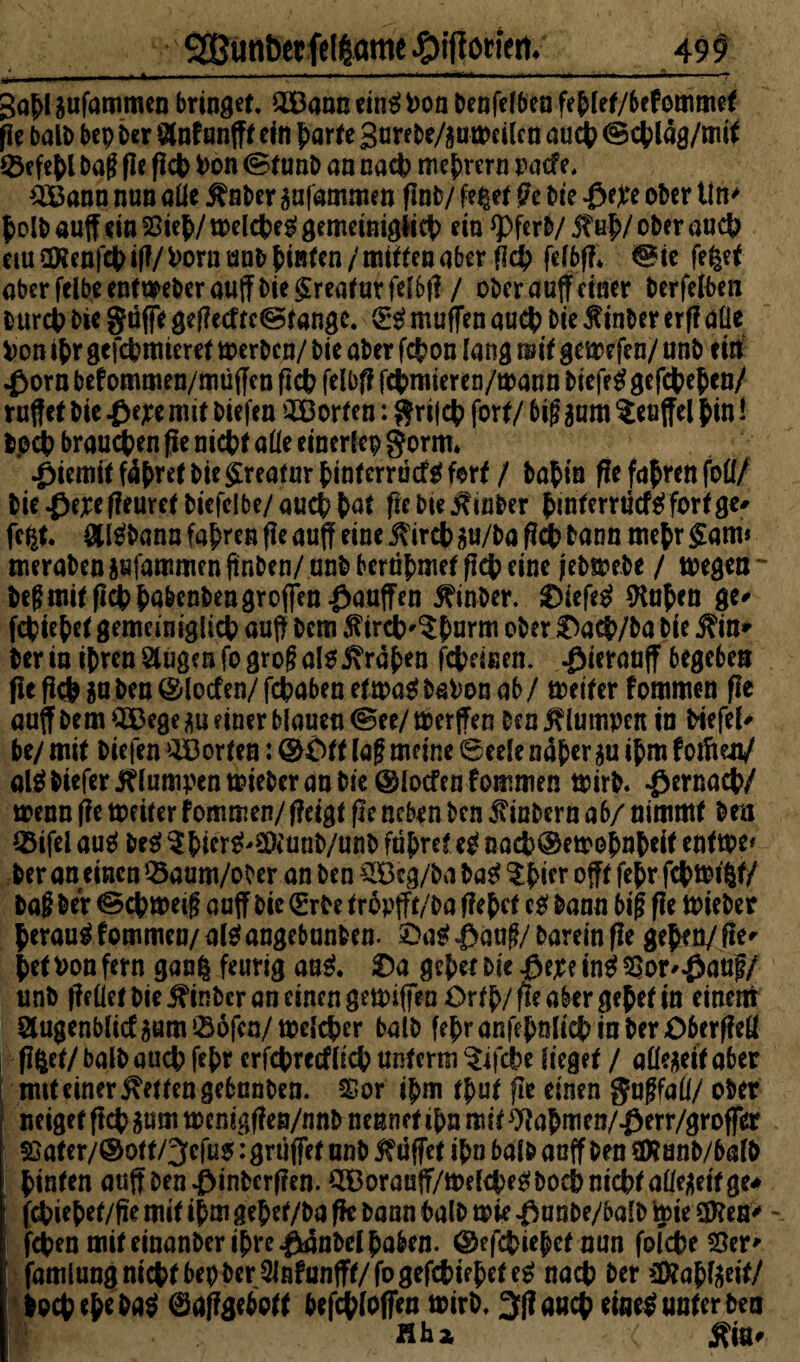 Wunderseltzame Historien. 499
Zahl zusammen bringet. Wann eins von denselben fehlet/bekommet
sie bald bey der Ankunfft ein harte Zurede/zuweilen auch Schläg/mit
Befehl daß sie sich von Stund an nach mehrern packe.
Wann nun alle Knder zusammen sind/ setzet sie die Hexe oder Un-
hold auff ein Vieh/ welches gemeiniglich ein Pferd/ Kuh/ oder auch
ein Mensch ist/ vorn und hinten / mitten aber sich selbst. Sie setzet
aber selbe entweder auff die Creatur selbst / oder auff einer derselben
durch die Füsse gesteckte Stange. Es mussen auch die Kinder erst alle
von ihr geschmieret werden/ die aber schon lang mit gewesen/ und ein
Horn bekommen/müssen sich selbst schmieren/wann dieses geschehen/
ruffet die Hexe mit diesen Worten: Frisch fort/ biß zum Teuffel hin!
doch brauchen sie nicht alle einerley Form.
Hiemit fähret die Creatur hinterrücks fort / dahin sie fahren soll/
die Hexe steuret dieselbe/ auch hat sie die Kinder hinterrücks fort ge-
setzt. Alsdann fahren sie auff eine Kirch zu/da sich dann mehr Cam-
meraden zusammen finden/ und berühmet sich eine jedwede / wegen
deß mit sich habenden grossen Hauffen Kinder. Dieses Ruhen ge-
schiehet gemeiniglich auff dem Kirch-Thurm oder Dach/da die Kin-
der in ihren Augen so groß als Krähen scheinen. Hierauff begeben
sie sich zu den Glocken/ schaben etwas davon ab / weiter kommen sie
auff dem Wege zu einer blauen See/ werffen den Klumpen in diesel-
be/ mit diesen Worten: GOtt laß meine Seele näher zu ihm kommen/
als dieser Klumpen wieder an die Glocken kommen wird. Hernach/
wenn sie weiter kommen/ steigt sie neben den Kindern ab/ nimmt den
Bisel aus des Thiers-Mund/und führet es nach Gewohnheit entwe-
der an einen Baum/oder an den Weg/da das Thier offt sehr schwitzt/
daß der Schweiß auff die Erde tröpfft/da stehet es dann biß sie wieder
heraus kommen/ als angebunden. Das Hauß/ darein sie gehen/ sie-
het von fern gantz feurig aus. Da gehet die Hexe ins Vor-Hauß/
und stellet die Kinder an einen gewissen Orth/ sie aber gehet in einem
Augenblick zum Bösen/ welcher bald sehr ansehnlich in der Oberstell
sitzet/ bald auch sehr erschrecklich unterm Tische lieget / allezeit aber
mit einer Ketten gebunden. Vor ihm thut sie einen Fußfall/ oder
neiget sich zum wenigsten/nnd nennet ihn mit Nahmen/Herr/grosser
Vater/Gott/Jesus: grüsset und Küsset ihn bald anff den Mund/bald
hinten auff den Hindersten. Worauff/welches doch nicht allezeit ge-
schiehet/sie mit ihm gehet/da sie dann bald wie Hunde/bald wie Men-
schen mit einander ihre Händel haben. Geschiehet nun solche Ver-
samlung nicht bey der Ankunfft/ so geschiehet es nach der Mahlzeit/
doch ehe das Gastgebott beschlossen wird. Ist auch eines unter den
Hh 2 Kin-